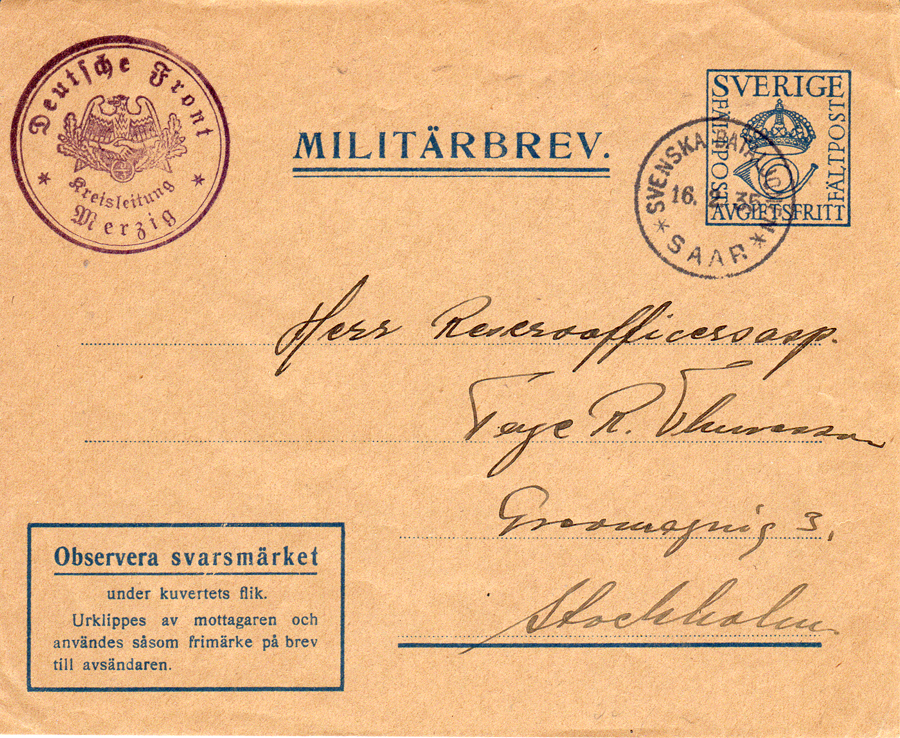 Deutsche Front
Kreisleitung
Merzig
MILITÄRBREV.
SVERIGE
FÄLTPOST
FÄLTPOST
AVGIFTSFRITT
SVENSKA BAT
16. 2. 35
SAAR
Herr Reservofficersasp.
R.
3.
Stockholm
Observera svarsmärket
under kuvertets flik.
Urklippes av mottagaren och
användes såsom frimärke på brev
till avsändaren.